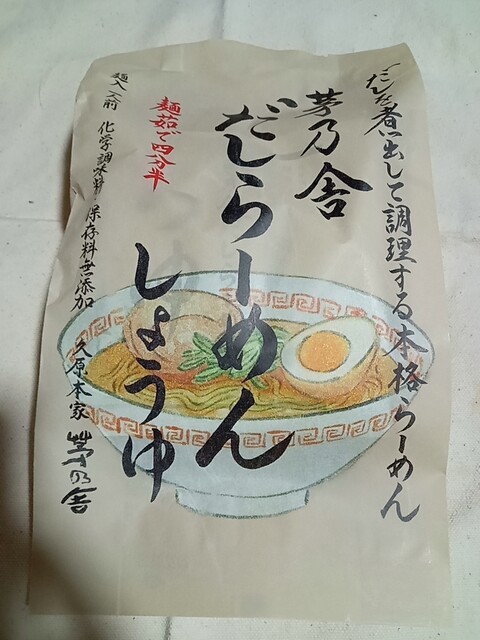 だしを煮出して調理する本格らーめん
茅乃舎
だしらーめん
しょうゆ
麺茹で四分半
麺入 二人前 化学調味料・保存料無添加 久原本家 茅乃舎